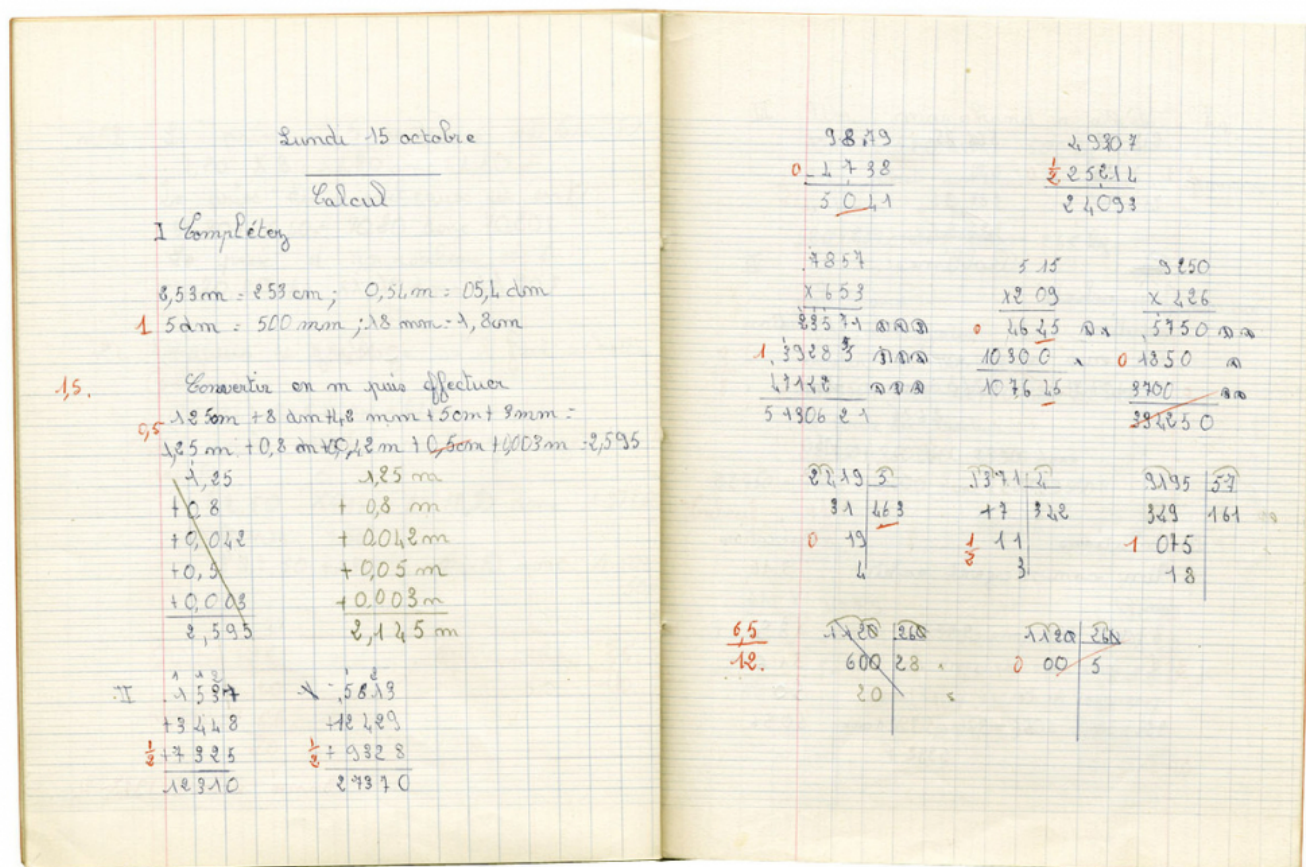 Lundi 15 octobre
Calcul
I Complétez
2,53m = 253 cm ; 0,54m = 05,4 dm
1 5dm = 500 mm ; 18 mm = 1,8cm
1,5.
Convertir en m puis effectuer
0,5 125cm + 8 dm + 42 mm + 5cm + 3mm =
1,25 m + 0,8 m + 0,042 m + 0,5cm + 0,003m = 2,595
1,25
+0,8
+0,042
+0,5
+0,003
2,595
1,25 m
+ 0,8 m
+ 0,042 m
+ 0,05 m
+ 0,003 m
2,145 m
II
1 1 2
1537
+3448
1/2 +7325
12310
5613
+12429
1/2 + 9328
27370
9879
0 - 4738
5041
49307
1/2 25214
24093
7857
x 653
23571
1. 39285
47142
5130621
515
x209
0 4625
10300
107625
9250
x 426
5750
0 1850
3700
394250
2419 | 5
31 | 463
0 19
4
1371 | 4
17 | 342
1/2 11
3
9195 | 57
349 | 161
1 075
18
6,5
12.
1120 | 260
600 | 28
20
1120 | 260
0 00 | 5